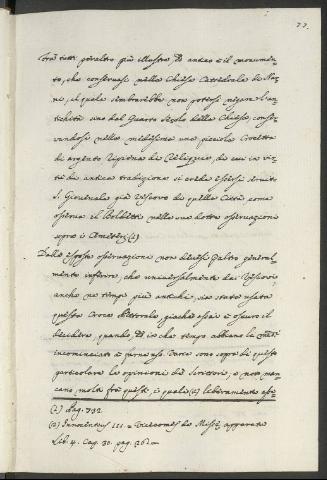 77.
frà tutti peraltro più illustre, ed antico è il monumen-
to, che conservasi nella Chiesa Cattedrale di Nar-
ni, il quale sembrarebbe non potersi negare l'an-
tichità sino dal Quarto Secolo della Chiesa, conser-
vandosi nella medesima una piccola Crocetta
di argento ripiena di Reliquie, di cui in vir-
tù di antica tradizione si crede essersi servito
S. Giovenale già Vescovo di quella Città, come
osserva il Boldetti nelle sue dotte osservazioni
sopra i Cimiterj (1)
Dalle esposte osservazioni non devesi d'altro general-
mente inferire, che universalmente dai Vescovi
anche ne' tempi più antichi, sia stata usata
questa Croce Pettorale, giacchè assai è oscuro il
decidere, quando, ed in che tempo abbiano la
incominciato a farne uso. Varie sono sopra di questo
particolare le opinioni de' Scrittori, e non man-
cano molti frà questi, i quali (2) liberamente as-
(1) Pag. 732.
(2) Innocentius III. = Vicecomes de Missæ apparatu
Lib. 4. Cap. 30. pag. 262